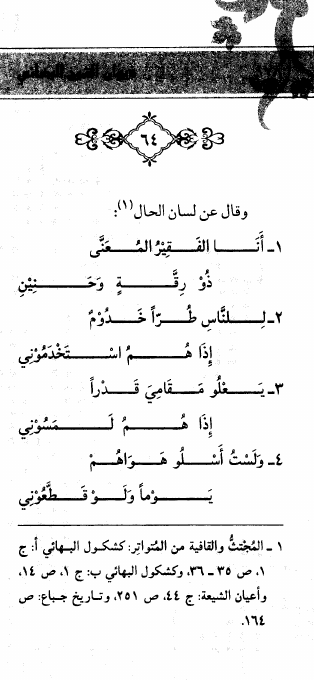 ٦٤
وقال عن لسان الحال(١):
١ـ أَنَـــا الفَـقِيْرُ المُـعَنَّى
ذُوْ رِقَّـــةٍ وَحَـــنِــيْنِ
٢ـ لِـــلنَّاسِ طُـرّاً خَـدُوْمٌ
إِذَا هُـــمُ اسْـتَخْدَمُوْنِي
٣ـ يَـــعْلُو مَـقَامِيَ قَـدْراً
إِذَا هُـــمُ لَـــمَسُوْنِي
٤ـ وَلَسْتُ أَسْـلُو هَـوَاهُـمْ
يَـــوْماً وَلَـوْ قَـطَّعُوْنِي
١ ـ المُجْتثُّ والقافية من المُتواتِر: كشكول البهائي أ: ج
١، ص ٣٥ ـ ٣٦، وكشكول البهائي ب: ج ١، ص ١٤،
وأعيان الشيعة: ج ٤٤، ص ٢٥١، وتاريخ جباع: ص
١٦٤.